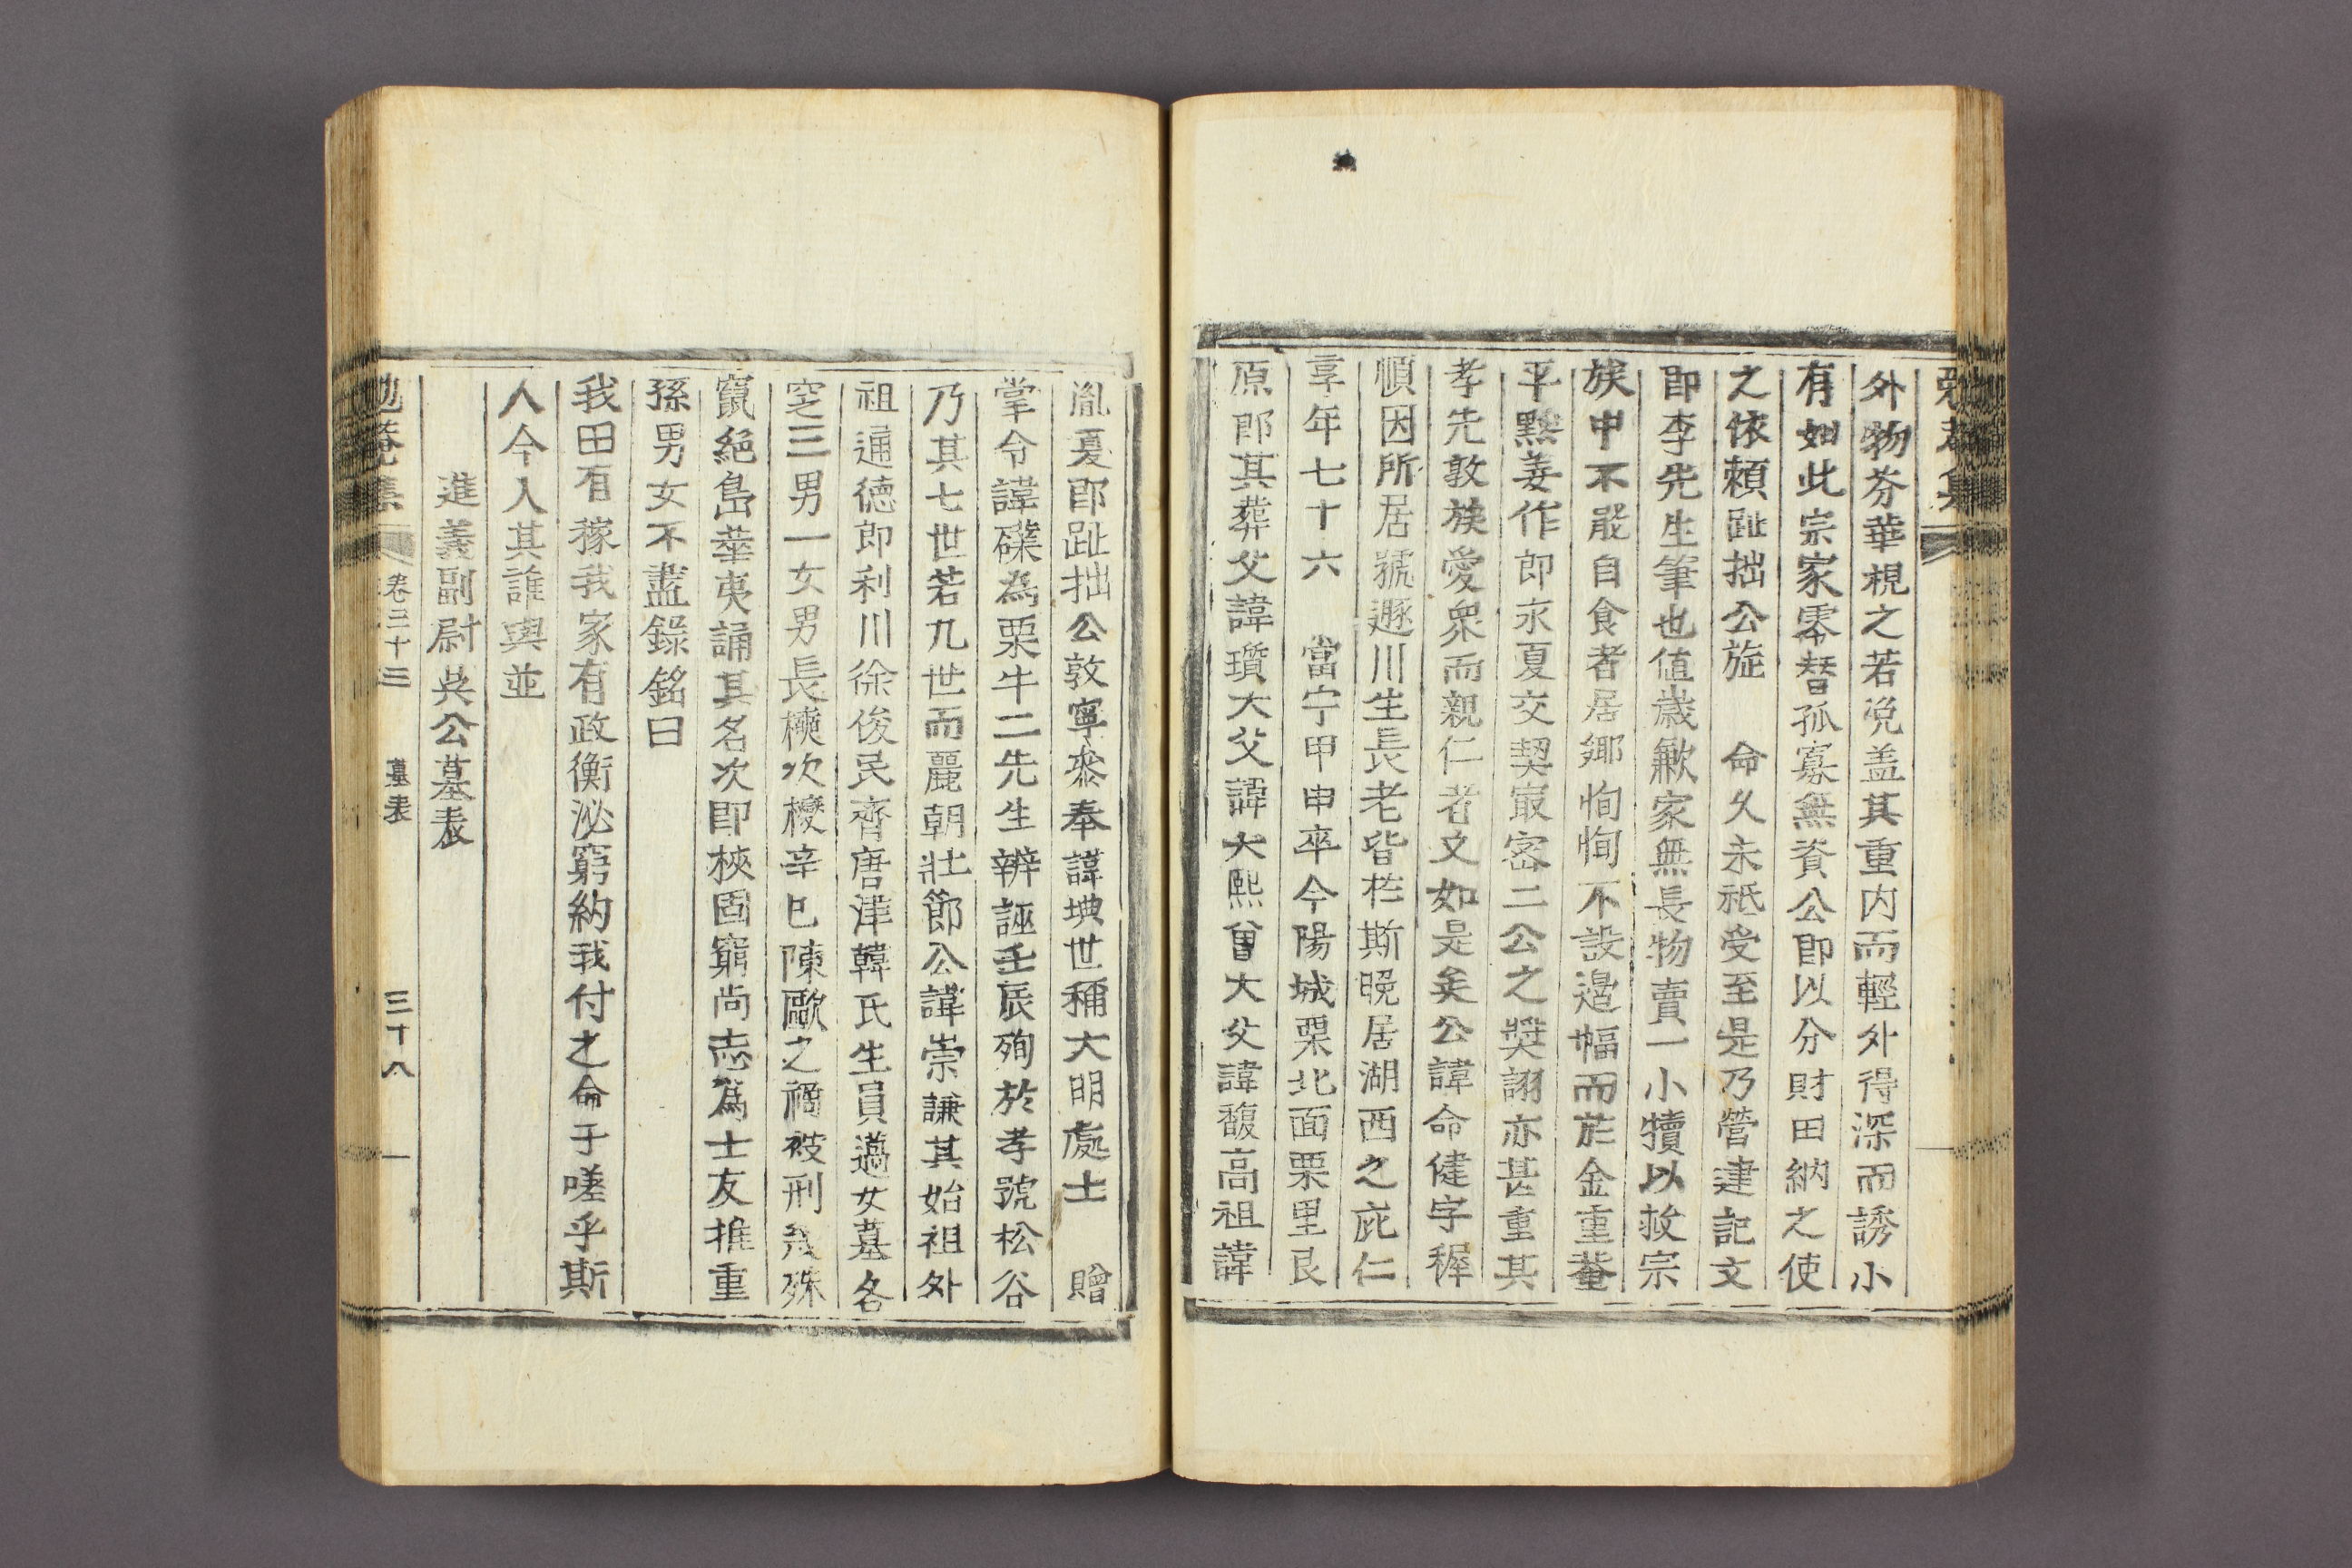 外物芬華視之若浼盖其重内而輕外得深而誘小
有如此宗家零替孤寡無資公即以分財田納之使
之依頼趾拙公旌 命久未祗受至是乃營建記文
即李先生筆也值歲歉家無長物賣一小犢以救宗
族中不能自食者居鄉恂恂不設邊幅而於金重菴
平默姜作郎永夏交契㝡密二公之奬詡亦甚重其
孝先敦族愛衆而親仁者文如是矣公諱命健字穉
順因所居號遯川生長老皆在斯晩居湖西之庇仁
享年七十六 當宁甲申卒今陽城栗北面栗里艮
原即其葬父諱瓚大父諱大熙曾大父諱馥高祖諱
胤夏即趾拙公敦寧叅奉諱㙉世稱大明處士 贈
掌令諱磼為栗牛二先生辨誣壬辰殉於孝號松谷
乃其七世若九世而麗朝壯節公諱崇謙其始祖外
祖通德郎利川徐俊民齊唐津韓氏生員邁女墓各
窆三男一女男長㮣次㰐辛巳陳歐之禍被刑㡬殊
竄絕島華夷誦其名次即梜固窮尚志為士友推重
孫男女不盡錄銘曰
我田有稼我家有政衡泌窮約我付之命于嗟乎斯
人今人其誰與並
進義副尉吳公墓表
勉菴集 卷三十三 墓表 三十八